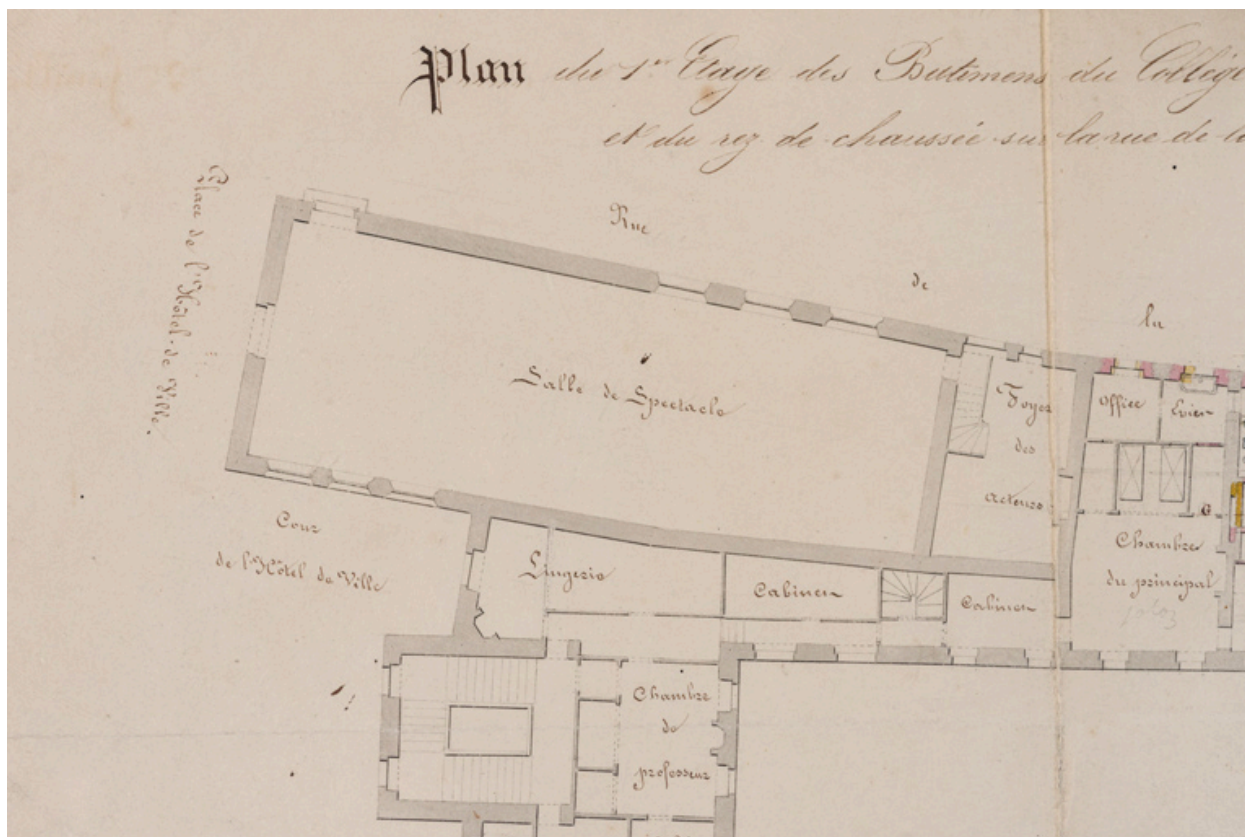 Plan du 1er Etage des Batimens du Collége
et du rez de chaussée sur la rue de la
Place de l'Hôtel-de-Ville.
Rue
de
la
Salle de Spectacle
Foyer
des
acteurs
Office
Evier
Cour
de l'Hôtel de Ville
Lingerie
Cabinet
Cabinet
Chambre
du principal
G
Chambre
de
professeur